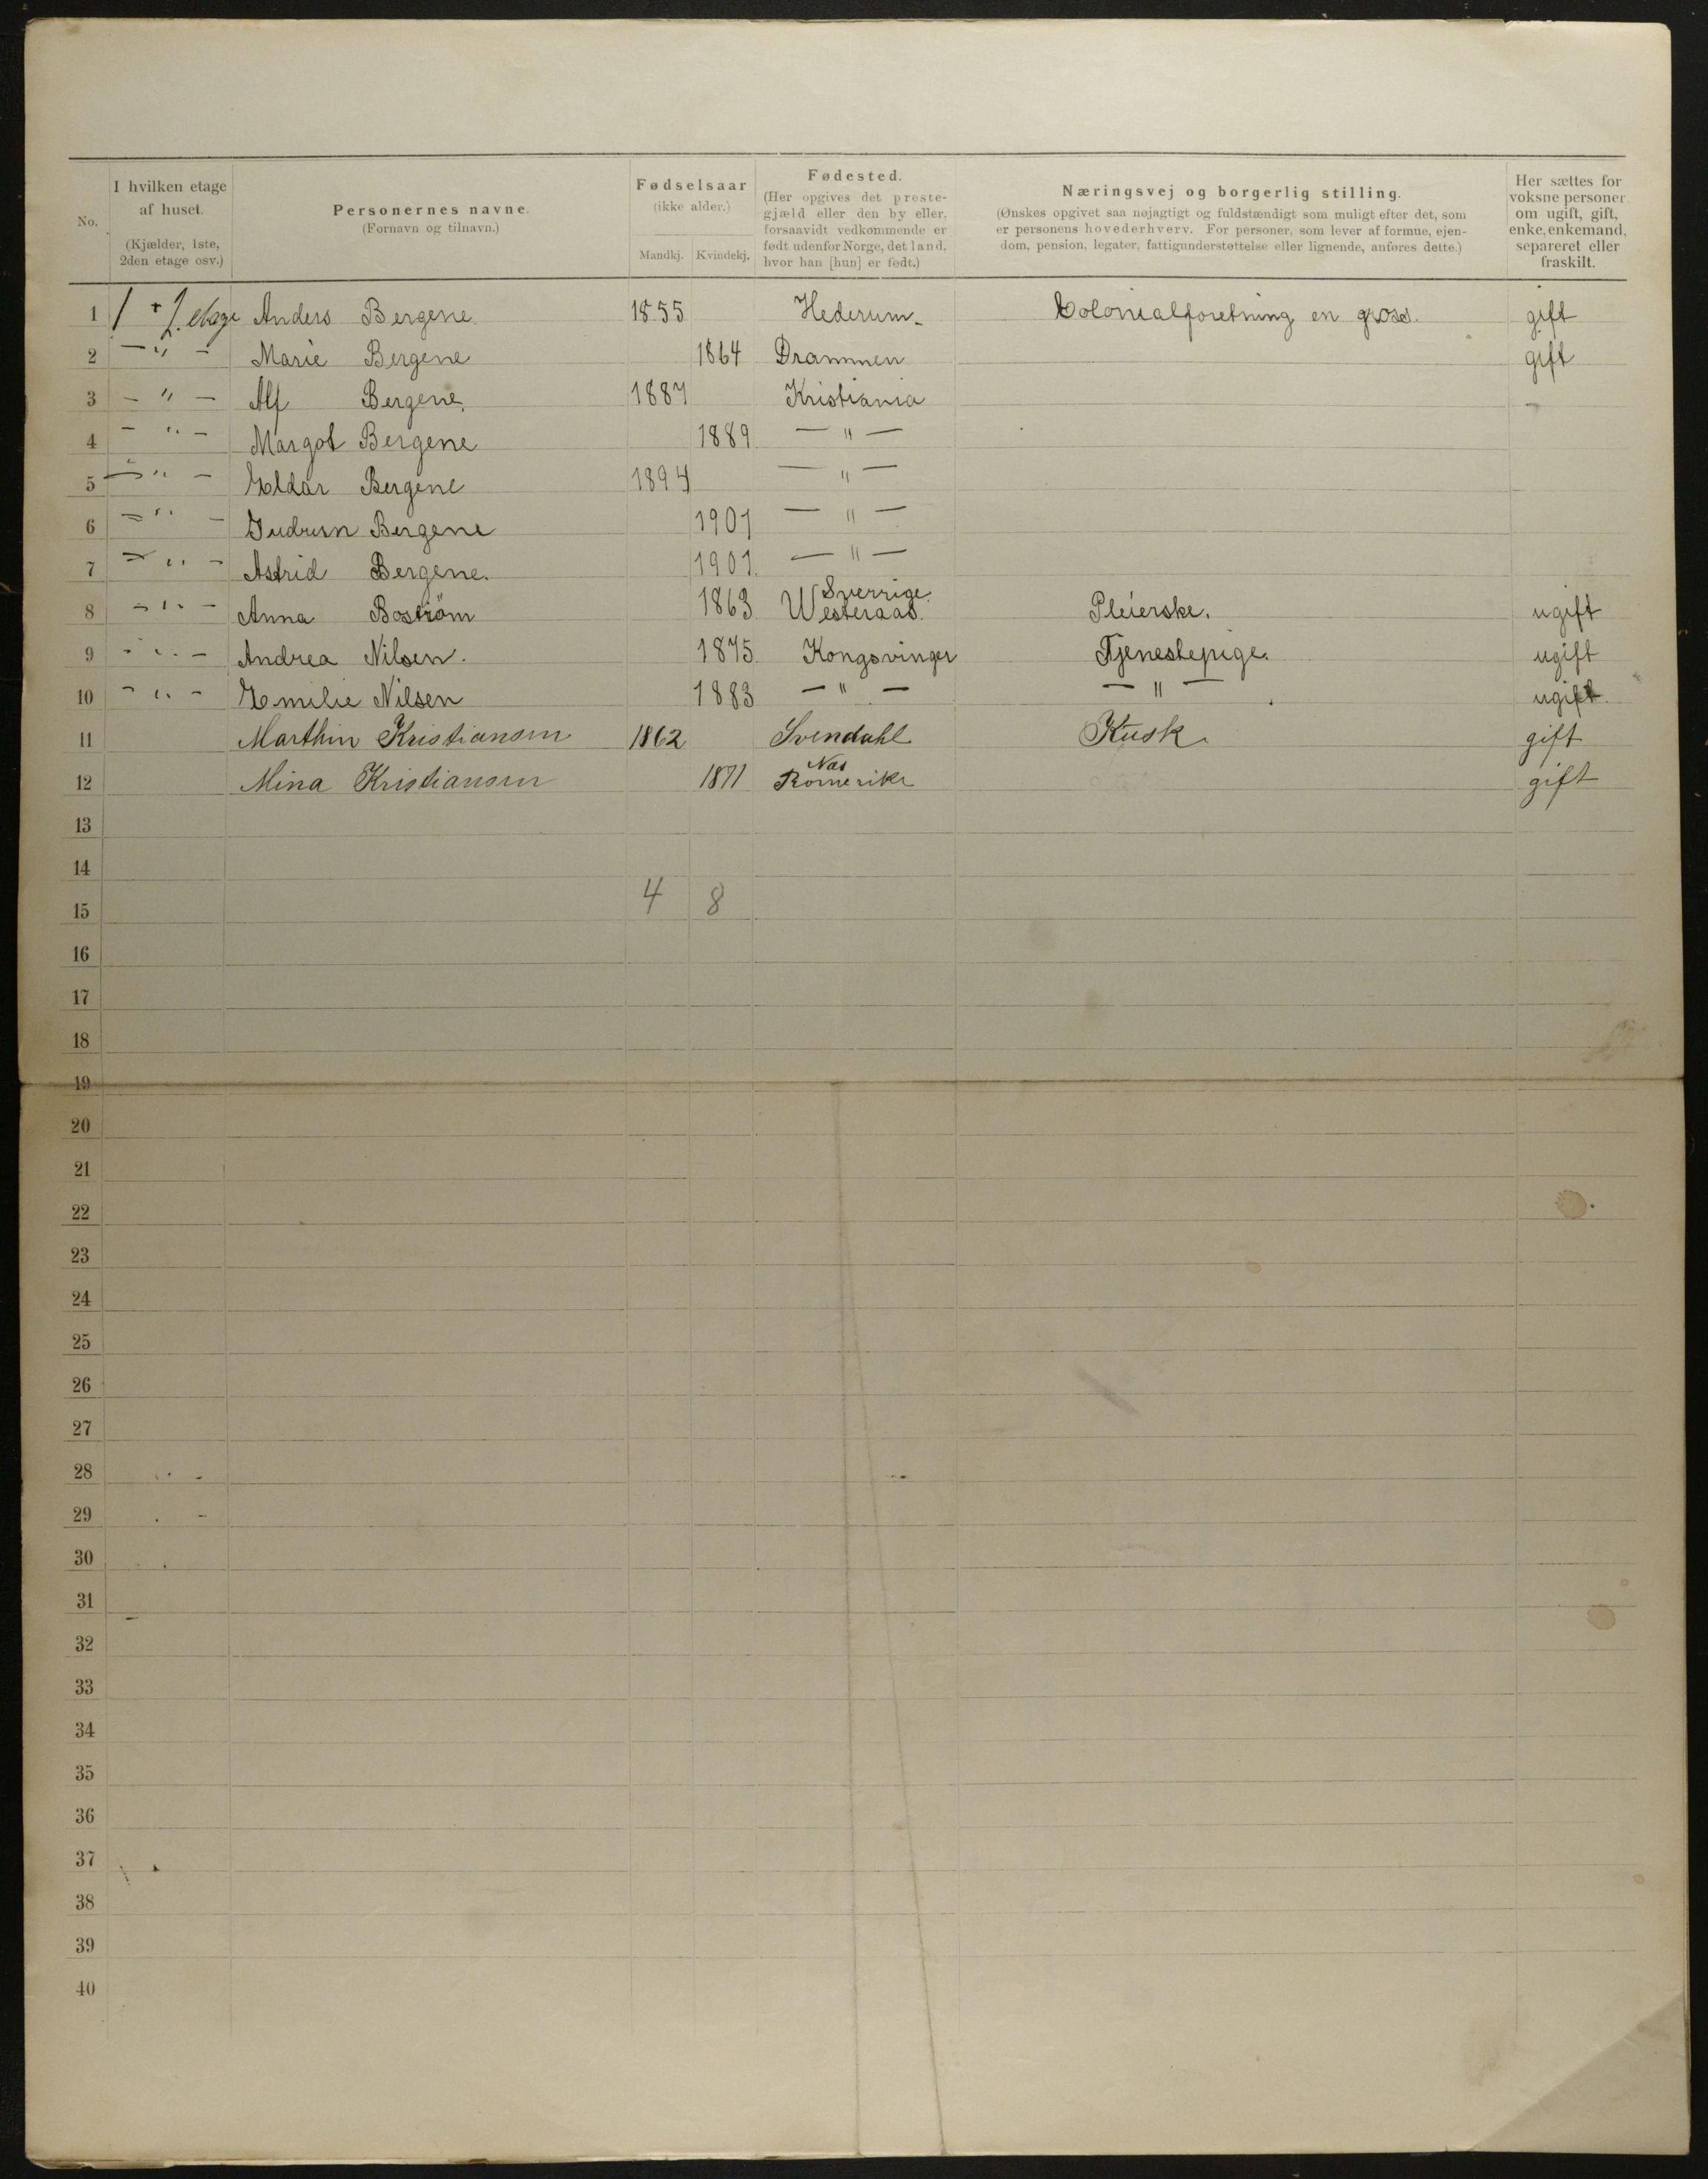 No.
I hvilken etage af huset.
(Kjælder, 1ste, 2den etage osv.)
Personernes navne.
(Fornavn og tilnavn.)
Fødselsaar
(ikke alder.)
Mandkj. Kvindekj.
Fødested.
(Her opgives det prestegjæld eller den by eller, forsaavidt vedkommende er født udenfor Norge, det land, hvor han [hun] er født.)
Næringsvej og borgerlig stilling.
(Ønskes opgivet saa nøjagtigt og fuldstændigt som muligt efter det, som er personens hovederhverv. For personer, som lever af formue, ejendom, pension, legater, fattigunderstøttelse eller lignende, anføres dette.)
Her sættes for voksne personer om ugift, gift, enke, enkemand, separeret eller fraskilt.
1 1 + 2. etage Anders Bergene 1855 Hederum. Colonialforetning en gross. gift
2 — " — Marie Bergene 1864 Drammen gift
3 — " — Alf Bergene. 1887 Kristiania
4 — " — Margot Bergene 1889 — " —
5 — " — Eldar Bergene 1894 — " —
6 — " — Gudrun Bergene 1901 — " —
7 — " — Astrid Bergene. 1901. — " —
8 — " — Anna Boström 1863 Sverrige. Westeraas. Pleierske. ugift
9 — " — Andrea Nilsen. 1875 Kongsvinger Tjenestepige. ugift
10 — " — Emilie Nilsen 1883 — " — — " — ugift.
11 Marthin Kristiansen 1862 Svendahl Kusk gift
12 Mina Kristiansen 1871 Nas Romerike gift
13
14
15 4 8
16
17
18
19
20
21
22
23
24
25
26
27
28
29
30
31
32
33
34
35
36
37
38
39
40